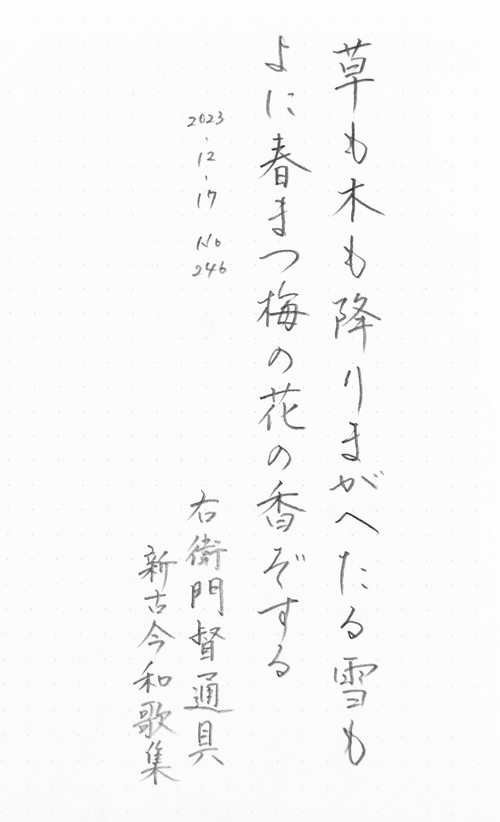 草も木も降りまがへたる雪も
よに春まつ梅の花の香ぞする
2023.12.17 No 246
右衛門督通具
新古今和歌集